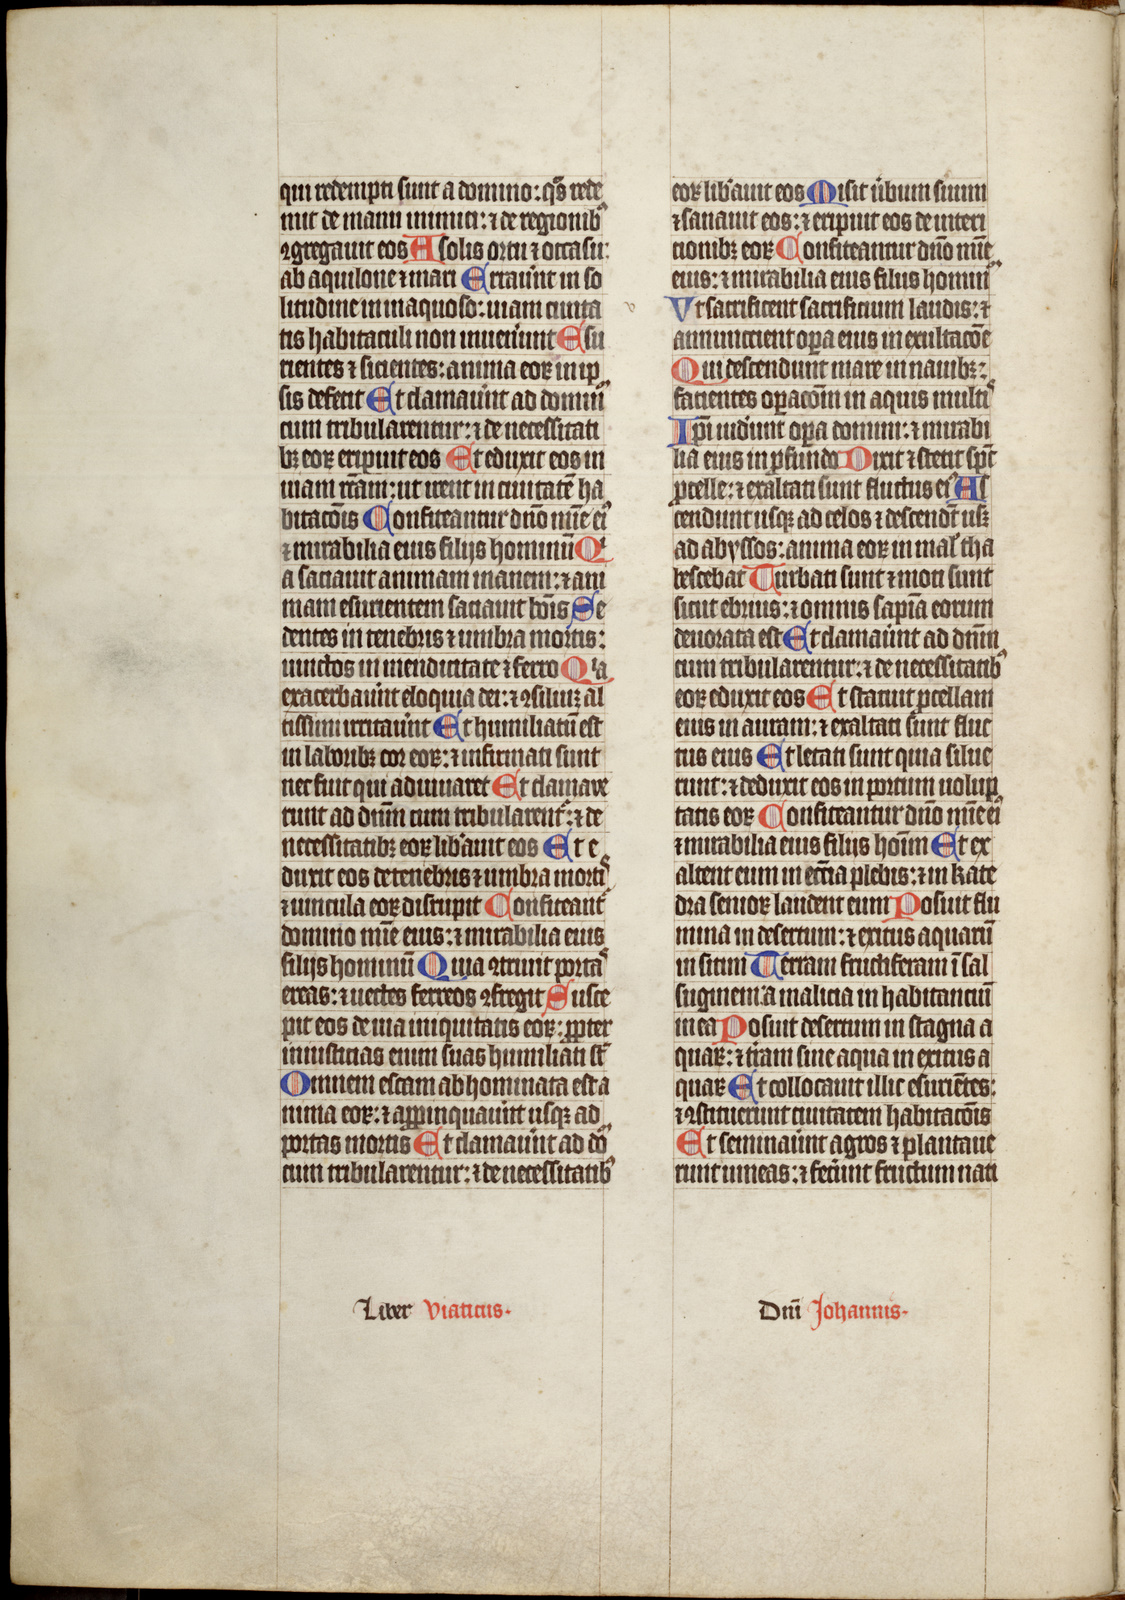 qui redempti sunt a domino: qͦs rede
mit de manu inimici: ⁊ de regionibꝰ
ꝯgregauit eos A solis ortu ⁊ occasu:
ab aquilone ⁊ mari Errauer̄t in so
litudine in inaquoso: uiam ciuita
tis habitaculi non inuener̄unt Esu
rientes ⁊ sicientes: anima eoꝝ in ip
sis defecit Et clamauer̄t ad dominū
cum tribularentur: ⁊ de necessitati
bꝫ eoꝝ eripuit eos Et eduxit eos in
uiam rc̄tam: ut irent in ciuitatē ha
bitacōis Confiteantur dn̄o mīe eiꝰ
⁊ mirabilia eius filijs hominū Qͥ
a saciauit animam inanem: ⁊ ani
mam esurientem saciauit bōis Se
dentes in tenebris ⁊ umbra mortis:
uinctos in mendicitate ⁊ ferro Qͥa
exacerbauer̄t eloquia dei: ⁊ ꝯsiliuꝫ al
tissimi irritauer̄t Et humiliatū est
in laboribꝫ cor eoꝝ: ⁊ infirmati sunt
nec fuit qui adiuuaret Et clamaue
runt ad dn̄m cum tribularent᷑: ⁊ de
necessitatibꝫ eoꝝ lib̾auit eos Et e
duxit eos de tenebris ⁊ umbra mortꝭ
⁊ uincula eoꝝ disrupit Confiteant᷑
domino mīe eius: ⁊ mirabilia eius
filijs hominū Quia ꝯtriuit portas
ereas: ⁊ uectes ferreos ꝯfregit Susce
pit eos de uia iniquitatis eoꝝ: ꝓpter
iniusticias enim suas humiliati st̄
Omnem escam abhominata est a
nima eoꝝ: ⁊ aꝓpinquauer̄t usqꝫ ad
portas mortis Et clamauer̄t ad dō
cum tribularentur: ⁊ de necessitatibꝰ
eoꝝ lib̾auit eos Misit u̾bum suum
⁊ sanauit eos: ⁊ eripuit eos de interi
tionibꝫ eoꝝ Confiteantur dn̄o mīe
eius: ⁊ mirabilia eius filijs hominū
Vt sacrificent sacrificium laudis: ⁊
annuncient oꝑa eius in exultacōe
Qui descendunt mare in nauibꝫ:
facientes oꝑacōm in aquis multꝭ
Ip̄i uider̄unt oꝑa domini: ⁊ mirabi
lia eius in ꝓfundo Dixit ⁊ stetit sp̄c
ꝓcelle: ⁊ exaltati sunt fluctus eiꝰ As
cendunt usqꝫ ad celos ⁊ descendt̄ usqꝫ
ad abyssos: anima eoꝝ in mal̾ tha
bescebat Turbati sunt ⁊ moti sunt
sicut ebrius: ⁊ omnis sapīa eorum
deuorata est Et clamauer̄nt ad dn̄m
cum tribularentur: ⁊ de necessitatibꝰ
eoꝝ eduxit eos Et statuit ꝓcellam
eius in auram: ⁊ exaltati sunt fluc
tus eius Et letati sunt quia silue
runt: ⁊ deduxit eos in portum uolup
tatis eoꝝ Confiteantur dn̄o mīe eiꝰ
⁊ mirabilia eius filijs hoīm Et ex
altent eum in ecc̄ia plebis: ⁊ in kate
dra senioꝝ laudent eum Posuit flu
mina in desertum: ⁊ exitus aquarū
in sitim Terram fructiferam ī sal
suginem: a malicia in habitanciū
in ea Posuit desertum in stagna a
quaꝝ: ⁊ tr̄am sine aqua in exitus a
quaꝝ Et collocauit illic esuriētes:
⁊ ꝯstituerunt ciuitatem habitacōis
Et seminauer̄nt agros ⁊ plantaue
runt uineas: ⁊ fecer̄unt fructum nati
Liber Viaticus.
Dn̄i Johannis.